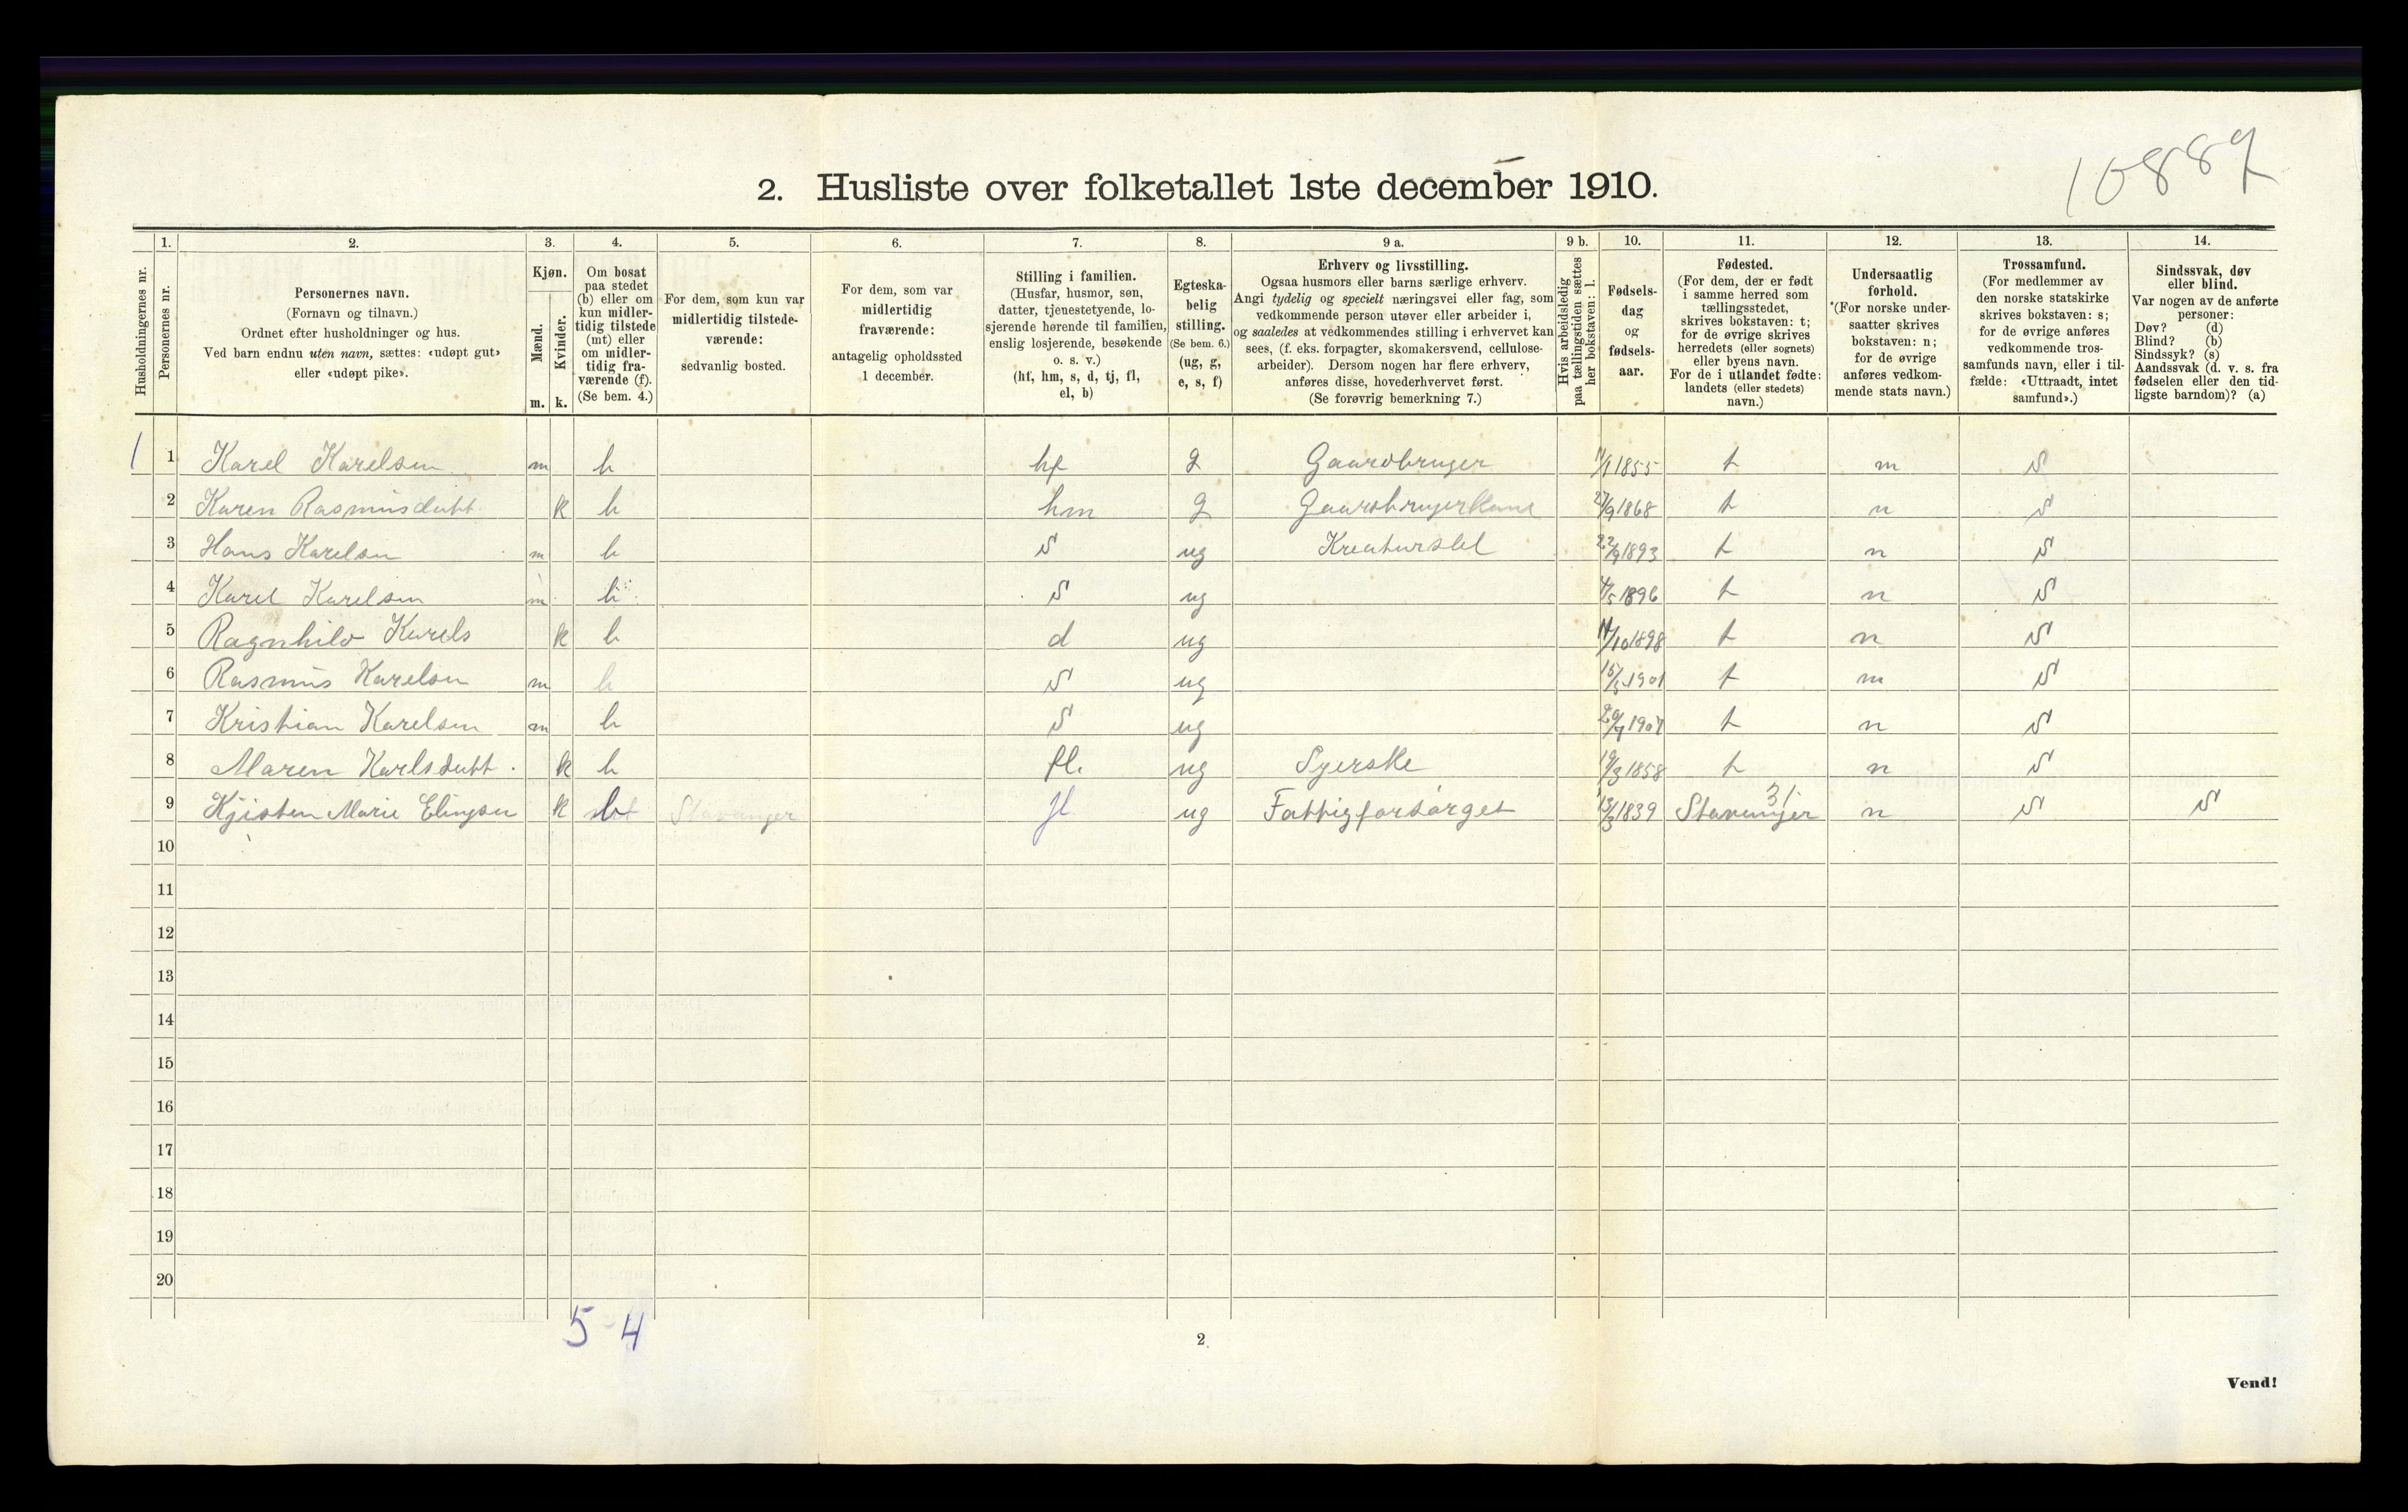 10889
2. Husliste over folketallet 1ste december 1910.
1. 2. 3. 4. 5. 6. 7. 8. 9 a. 9 b. 10. 11. 12. 13. 14.
Husholdningernes nr.
Personernes nr.
Personernes navn.
(Fornavn og tilnavn.)
Ordnet efter husholdninger og hus.
Ved barn endnu uten navn, sættes: «udøpt gut»
eller «udøpt pike».
Kjøn.
Mænd.
Kvinder.
m. k.
Om bosat
paa stedet
(b) eller om
kun midler-
tidig tilstede
(mt) eller
om midler-
tidig fra-
værende (f).
(Se bem. 4.)
For dem, som kun var
midlertidig tilstede-
værende:
sedvanlig bosted.
For dem, som var
midlertidig
fraværende:
antagelig opholdssted
1 december.
Stilling i familien.
(Husfar, husmor, søn,
datter, tjenestetyende, lo-
sjerende hørende til familien,
enslig losjerende, besøkende
o. s. v.)
(hf, hm, s, d, tj, fl,
el, b)
Egteska-
belig
stilling.
(Se bem. 6.)
(ug, g,
e, s, f)
Erhverv og livsstilling.
Ogsaa husmors eller barns særlige erhverv.
Angi tydelig og specielt næringsvei eller fag, som
vedkommende person utøver eller arbeider i,
og saaledes at vedkommendes stilling i erhvervet kan
sees, (f. eks. forpagter, skomakersvend, cellulose-
arbeider). Dersom nogen har flere erhverv,
anføres disse, hovederhvervet først.
(Se forøvrig bemerkning 7.)
Hvis arbeidsledig
paa tællingstiden sættes
her bokstaven: l.
Fødsels-
dag
og
fødsels-
aar.
Fødested.
(For dem, der er født
i samme herred som
tællingsstedet,
skrives bokstaven: t;
for de øvrige skrives
herredets (eller sognets)
eller byens navn.
For de i utlandet fødte:
landets (eller stedets)
navn.)
Undersaatlig
forhold.
(For norske under-
saatter skrives
bokstaven: n;
for de øvrige
anføres vedkom-
mende stats navn.)
Trossamfund.
(For medlemmer av
den norske statskirke
skrives bokstaven: s;
for de øvrige anføres
vedkommende tros-
samfunds navn, eller i til-
fælde: «Uttraadt, intet
samfund».)
Sindssvak, døv
eller blind.
Var nogen av de anførte
personer:
Døv? (d)
Blind? (b)
Sindssyk? (s)
Aandssvak (d. v. s. fra
fødselen eller den tid-
ligste barndom)? (a)
1 1 Karel Karelsen m b hf g Gaardbruger 11/1 1855 t n s
2 Karen Rasmusdatt. k b hm g Gaardbrugerkone 27/9 1868 t n s
3 Hans Karelsen m b s ug Kreaturstel 22/9 1893 t n s
4 Karel Karelsen m b s ug 4/5 1896 t n s
5 Ragnhild Karels k b d ug 11/10 1898 t n s
6 Rasmus Karelsen m b s ug 15/5 1901 t n s
7 Kristian Karelsen m b s ug t n s
8 Maren Karlsdatt. k b fl. ug Syerske 19/3 1858 t n s
9 Kjisten Marie Elingsen k Stavanger fl ug Fattigforsørget 13/3 1839 31 Stavanger n s s
10
11
12
13
14
15
16
17
18
19
20
5-4
2
Vend!